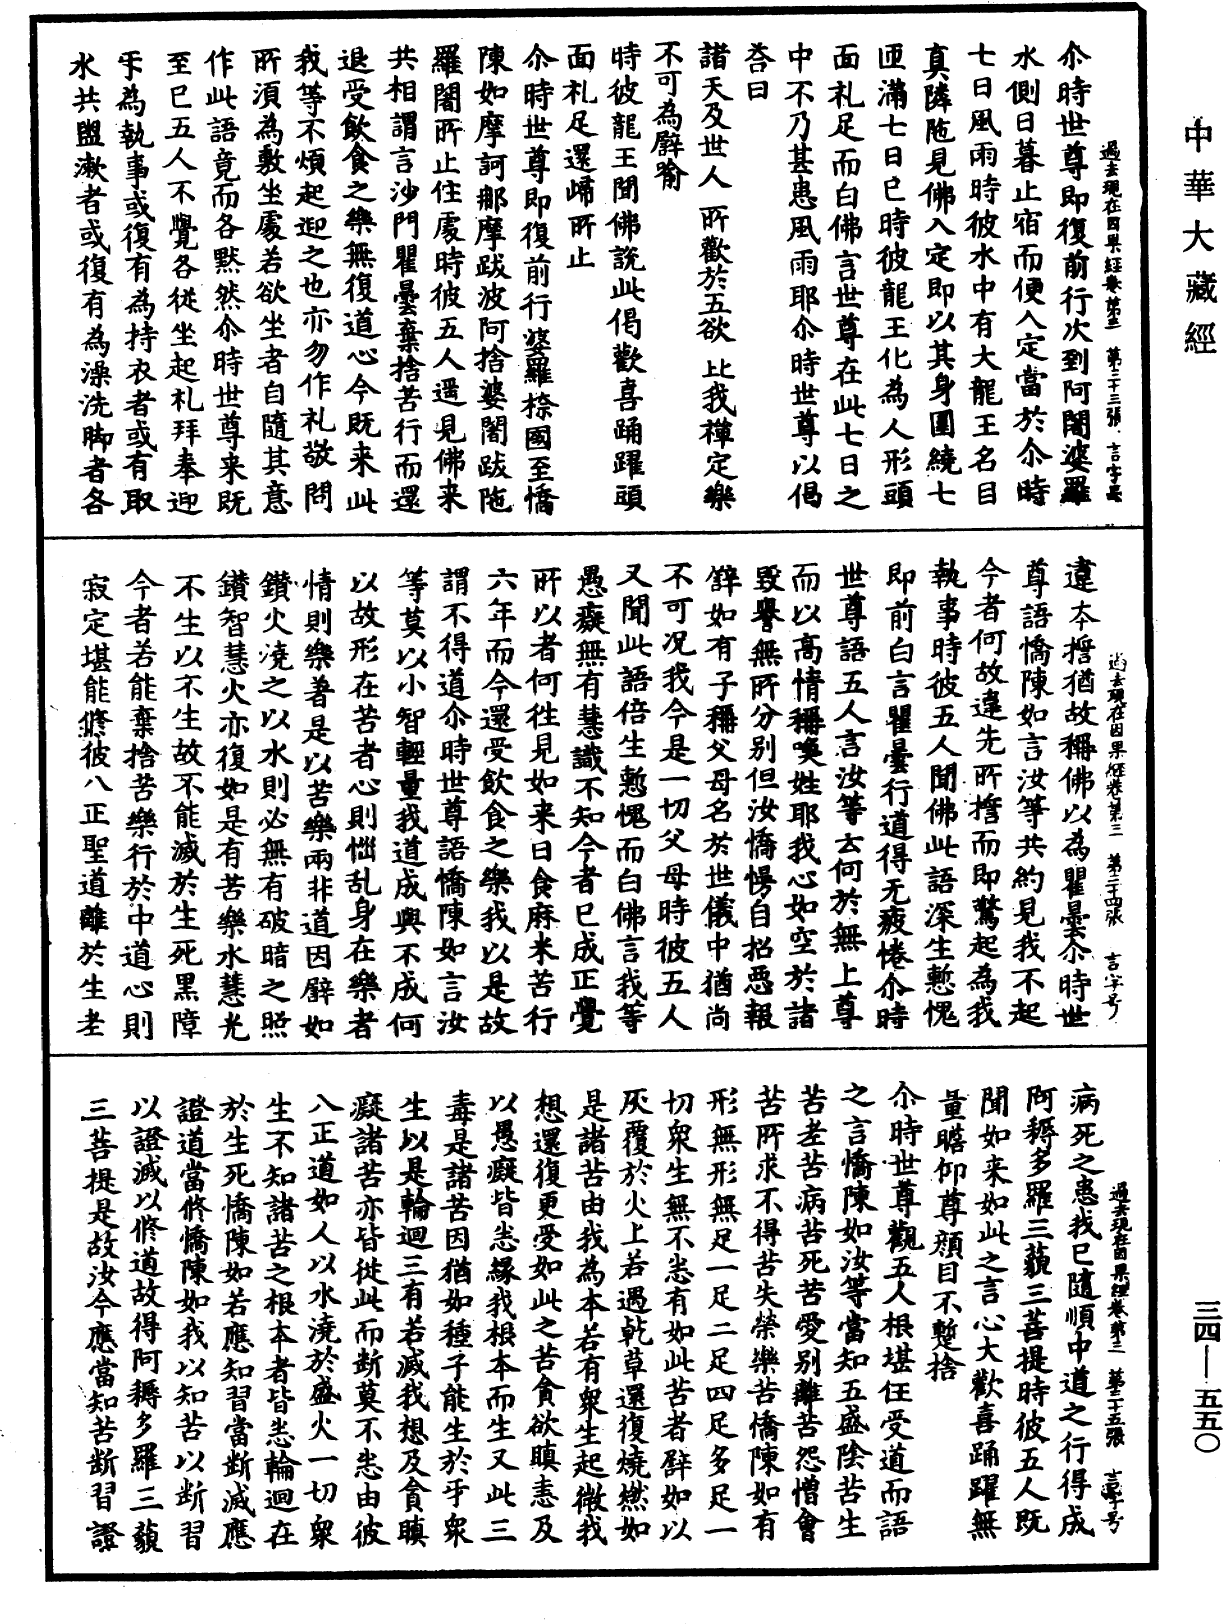 中華大藏經
過去現在因果經卷第三　第三十三張　言字号
尒時世尊即復前行次到阿闍婆羅
水側日暮止宿而便入定當於尒時
七日風雨時彼水中有大龍王名目
真隣陁見佛入定即以其身圍繞七
匝滿七日已時彼龍王化為人形頭
面礼足而白佛言世尊在此七日之
中不乃甚患風雨耶尒時世尊以偈
荅曰
諸天及世人　所歡於五欲　比我禪定樂
不可為譬喻
時彼龍王聞佛說此偈歡喜踊躍頭
面礼足還歸所止
尒時世尊即復前行婆羅㮈國至憍
陳如摩訶那摩跋波阿捨婆闍跋陁
羅闍所止住處時彼五人遥見佛来
共相謂言沙門瞿曇棄捨苦行而還
退受飲食之樂無復道心今既来此
我等不煩起迎之也亦勿作礼敬問
所湏為敷坐處若欲坐者自隨其意
作此語竟而各默然尒時世尊来既
至已五人不覺各從坐起礼拜奉迎
乎為執事或復有為持衣者或有取
水共盥漱者或復有為澡洗脚者各
過去現在因果經卷第三　第三十四張　言字号
違本誓猶故稱佛以為瞿曇尒時世
尊語憍陳如言汝等共約見我不起
今者何故違先所誓而即驚起為我
執事時彼五人聞佛此語深生慙愧
即前白言瞿曇行道得无疲惓尒時
世尊語五人言汝等云何於無上尊
而以高情稱喚姓耶我心如空於諸
毀譽無所分別但汝憍慢自招惡報
譬如有子稱父母名於世儀中猶尚
不可况我今是一切父母時彼五人
又聞此語倍生慙愧而白佛言我等
愚癡無有慧識不知今者已成正覺
所以者何徃見如来日食麻米苦行
六年而今還受飲食之樂我以是故
謂不得道尒時世尊語憍陳如言汝
等莫以小智輕量我道成與不成何
以故形在苦者心則惱乱身在樂者
情則樂著是以苦樂兩非道因譬如
鑽火澆之以水則必無有破暗之照
鑽智慧火亦復如是有苦樂水慧光
不生以不生故不能滅於生死黑障
今者若能棄捨苦樂行於中道心則
寂定堪能修彼八正聖道離於生老
過去現在因果經卷第三　第三十五張　言字号
病死之患我已隨順中道之行得成
阿耨多羅三藐三菩提時彼五人既
聞如来如此之言心大歡喜踊躍無
量瞻仰尊顔目不蹔捨
尒時世尊觀五人根堪任受道而語
之言憍陳如汝等當知五盛陰苦生
苦老苦病苦死苦愛別離苦怨憎會
苦所求不得苦失榮樂苦憍陳如有
形無形無足一足二足四足多足一
切衆生無不悉有如此苦者譬如以
灰覆於火上若遇乾草還復燒燃如
是諸苦由我為本若有衆生起微我
想還復更受如此之苦貪欲瞋恚及
以愚癡皆悉緣我根本而生又此三
毒是諸苦因猶如種子能生於牙衆
生以是輪迴三有若滅我想及貪瞋
癡諸苦亦皆從此而断莫不悉由彼
八正道如人以水澆於盛火一切衆
生不知諸苦之根本者皆悉輪迴在
於生死憍陳如若應知習當断滅應
證道當修憍陳如我以知苦以断習
以證滅以修道故得阿耨多羅三藐
三菩提是故汝今應當知苦断習證
三四—五五〇